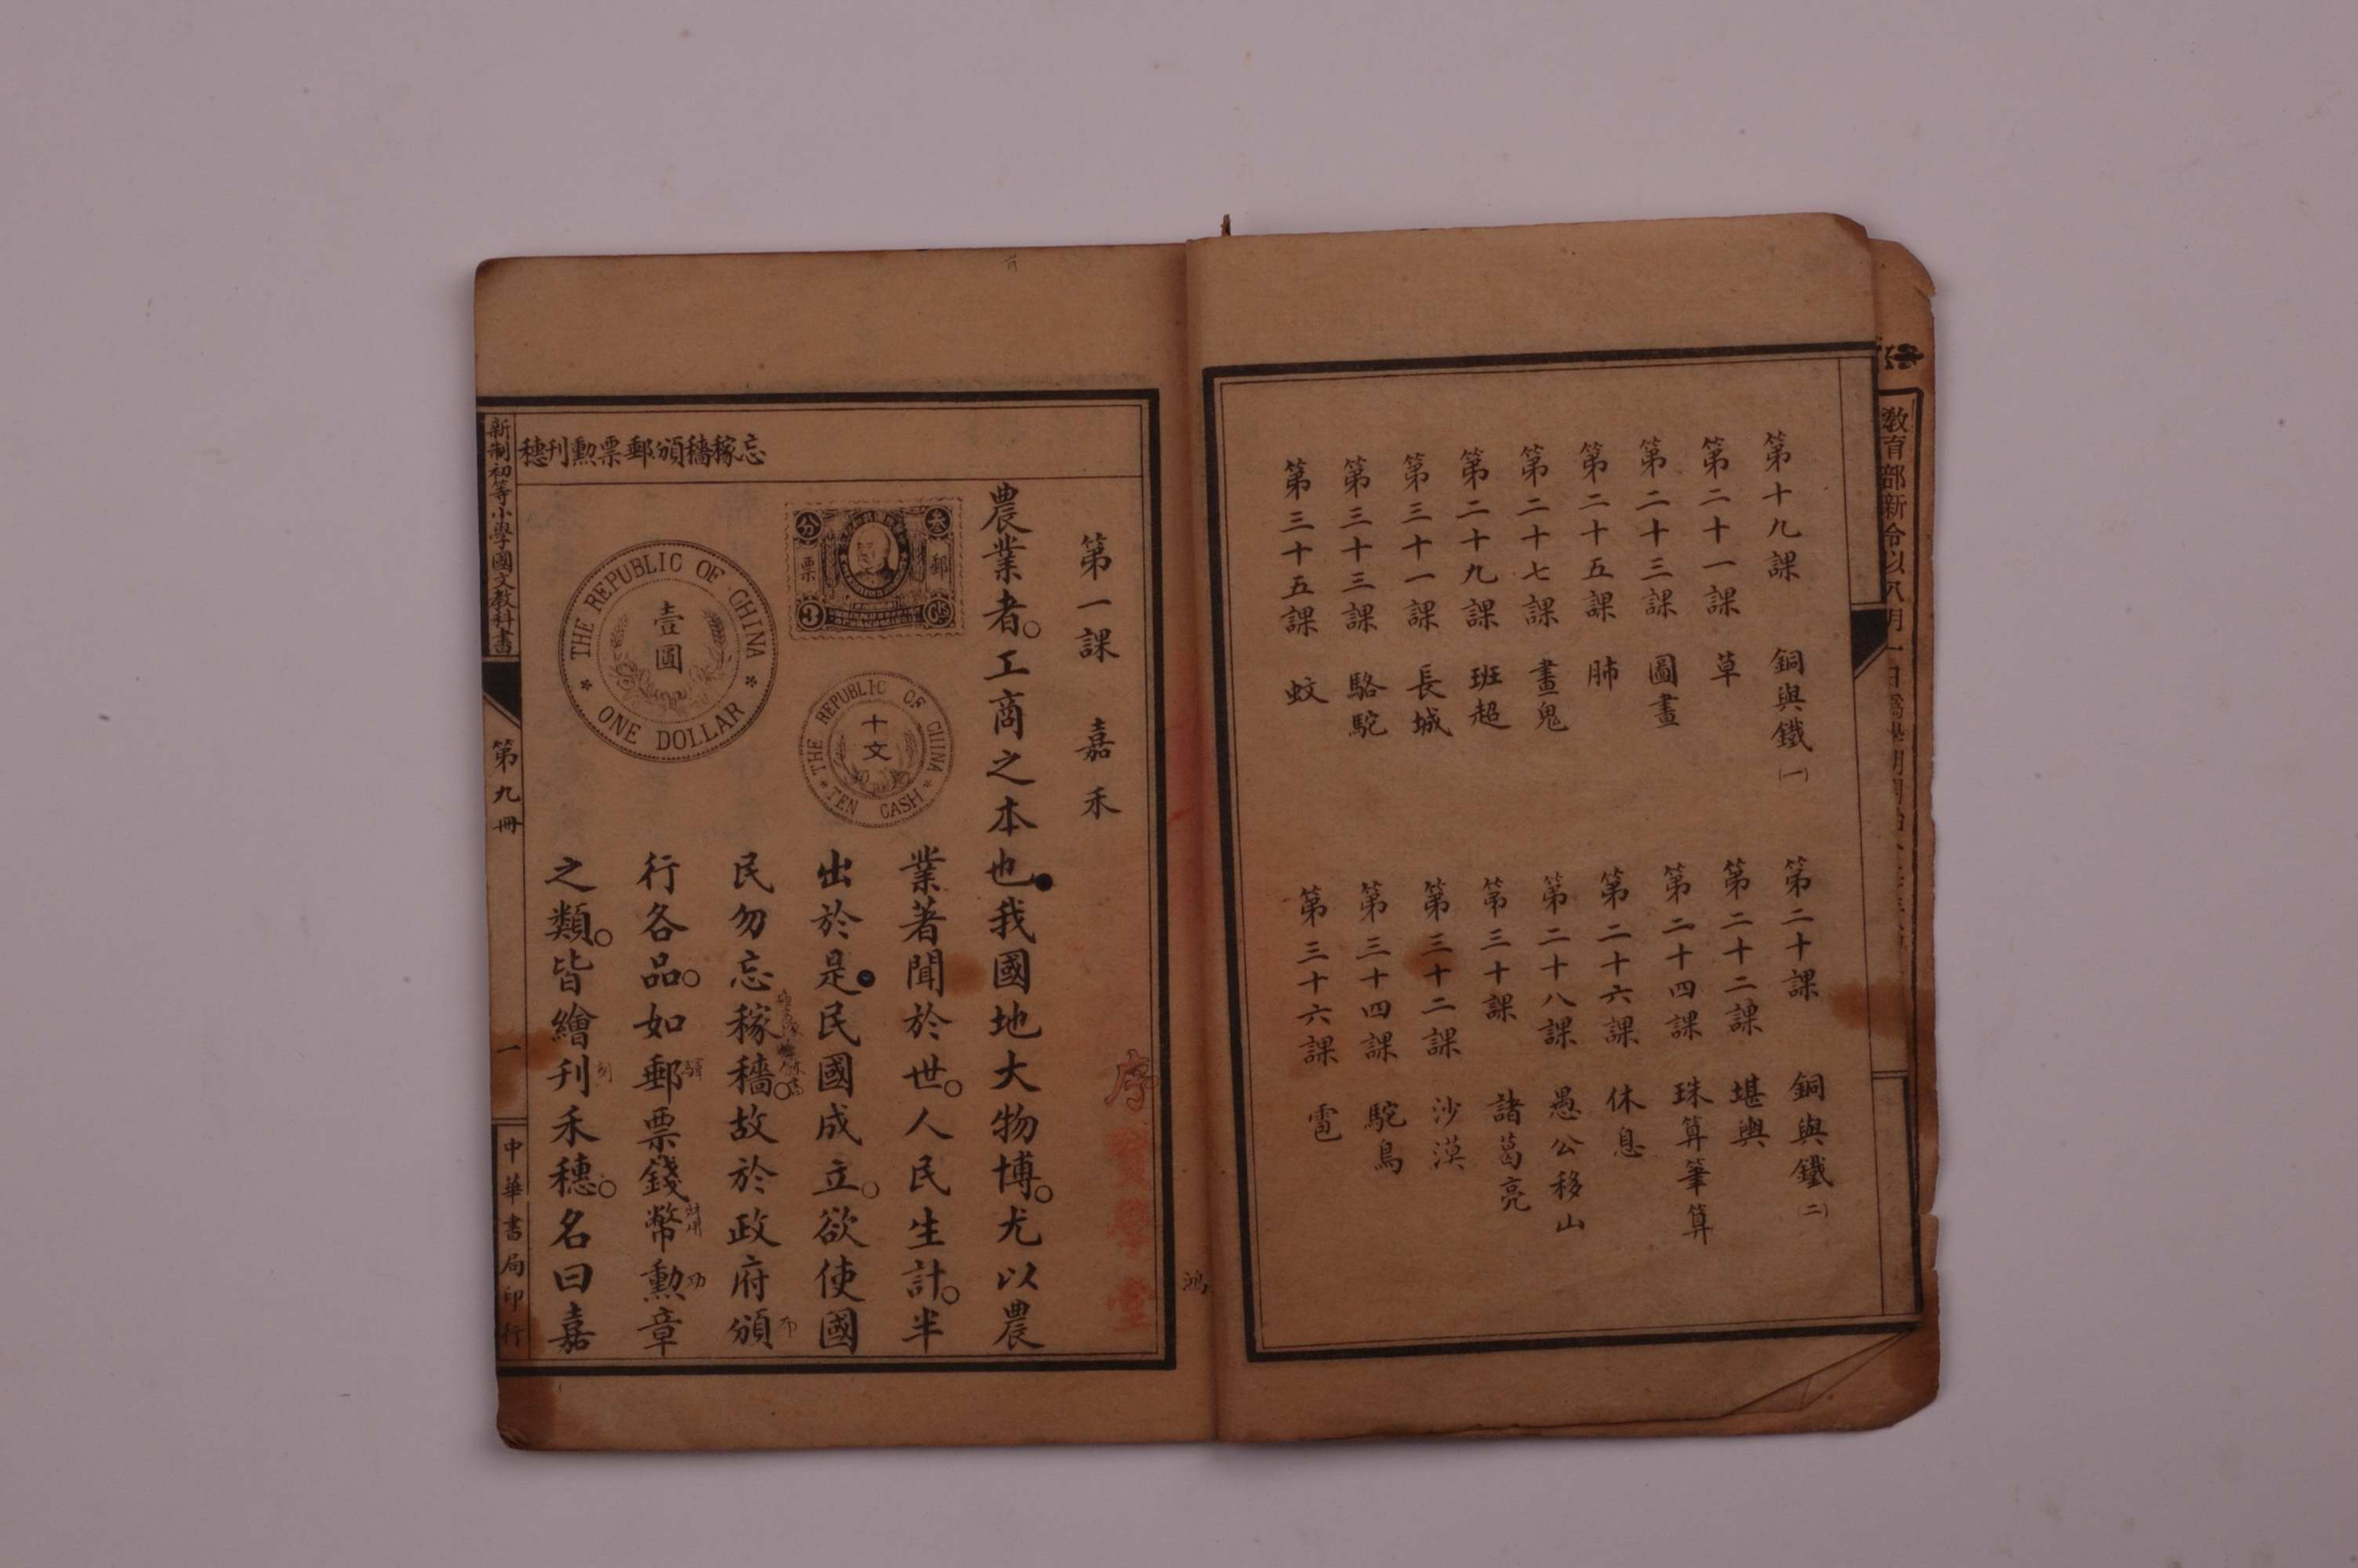 教育部新令以八月一日為學
第十九課 銅與鐵(一)
第二十課 銅與鐵(二)
第二十一課 草
第二十二課 堪輿
第二十三課 圖畫
第二十四課 珠算筆算
第二十五課 肺
第二十六課 休息
第二十七課 畫鬼
第二十八課 愚公移山
第二十九課 班超
第三十課 諸葛亮
第三十一課 長城
第三十二課 沙漠
第三十三課 駱駝
第三十四課 駝鳥
第三十五課 蚊
第三十六課 雹
鴻
忘稼穡頒郵票勳刊穗
第一課 嘉禾
農業者。工商之本也。我國地大物博。尤以農
業著聞於世。人民生計。半
出於是。民國成立。欲使國
民勿忘稼穡。故於政府頒
行各品。如郵票錢幣勳章
之類。皆繪刊禾穗。名曰嘉
分
叁
郵
票
3
Cts
THE REPUBLIC OF CHINA
壹圓
ONE DOLLAR
THE REPUBLIC OF CHINA
十文
TEN CASH
新制初等小學國文教科書
第九冊
一
中華書局印行